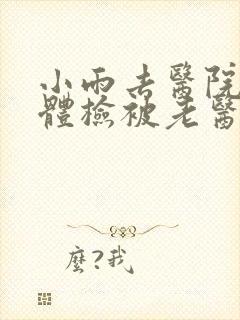 小雨去醫院
體檢被老醫
麼?我